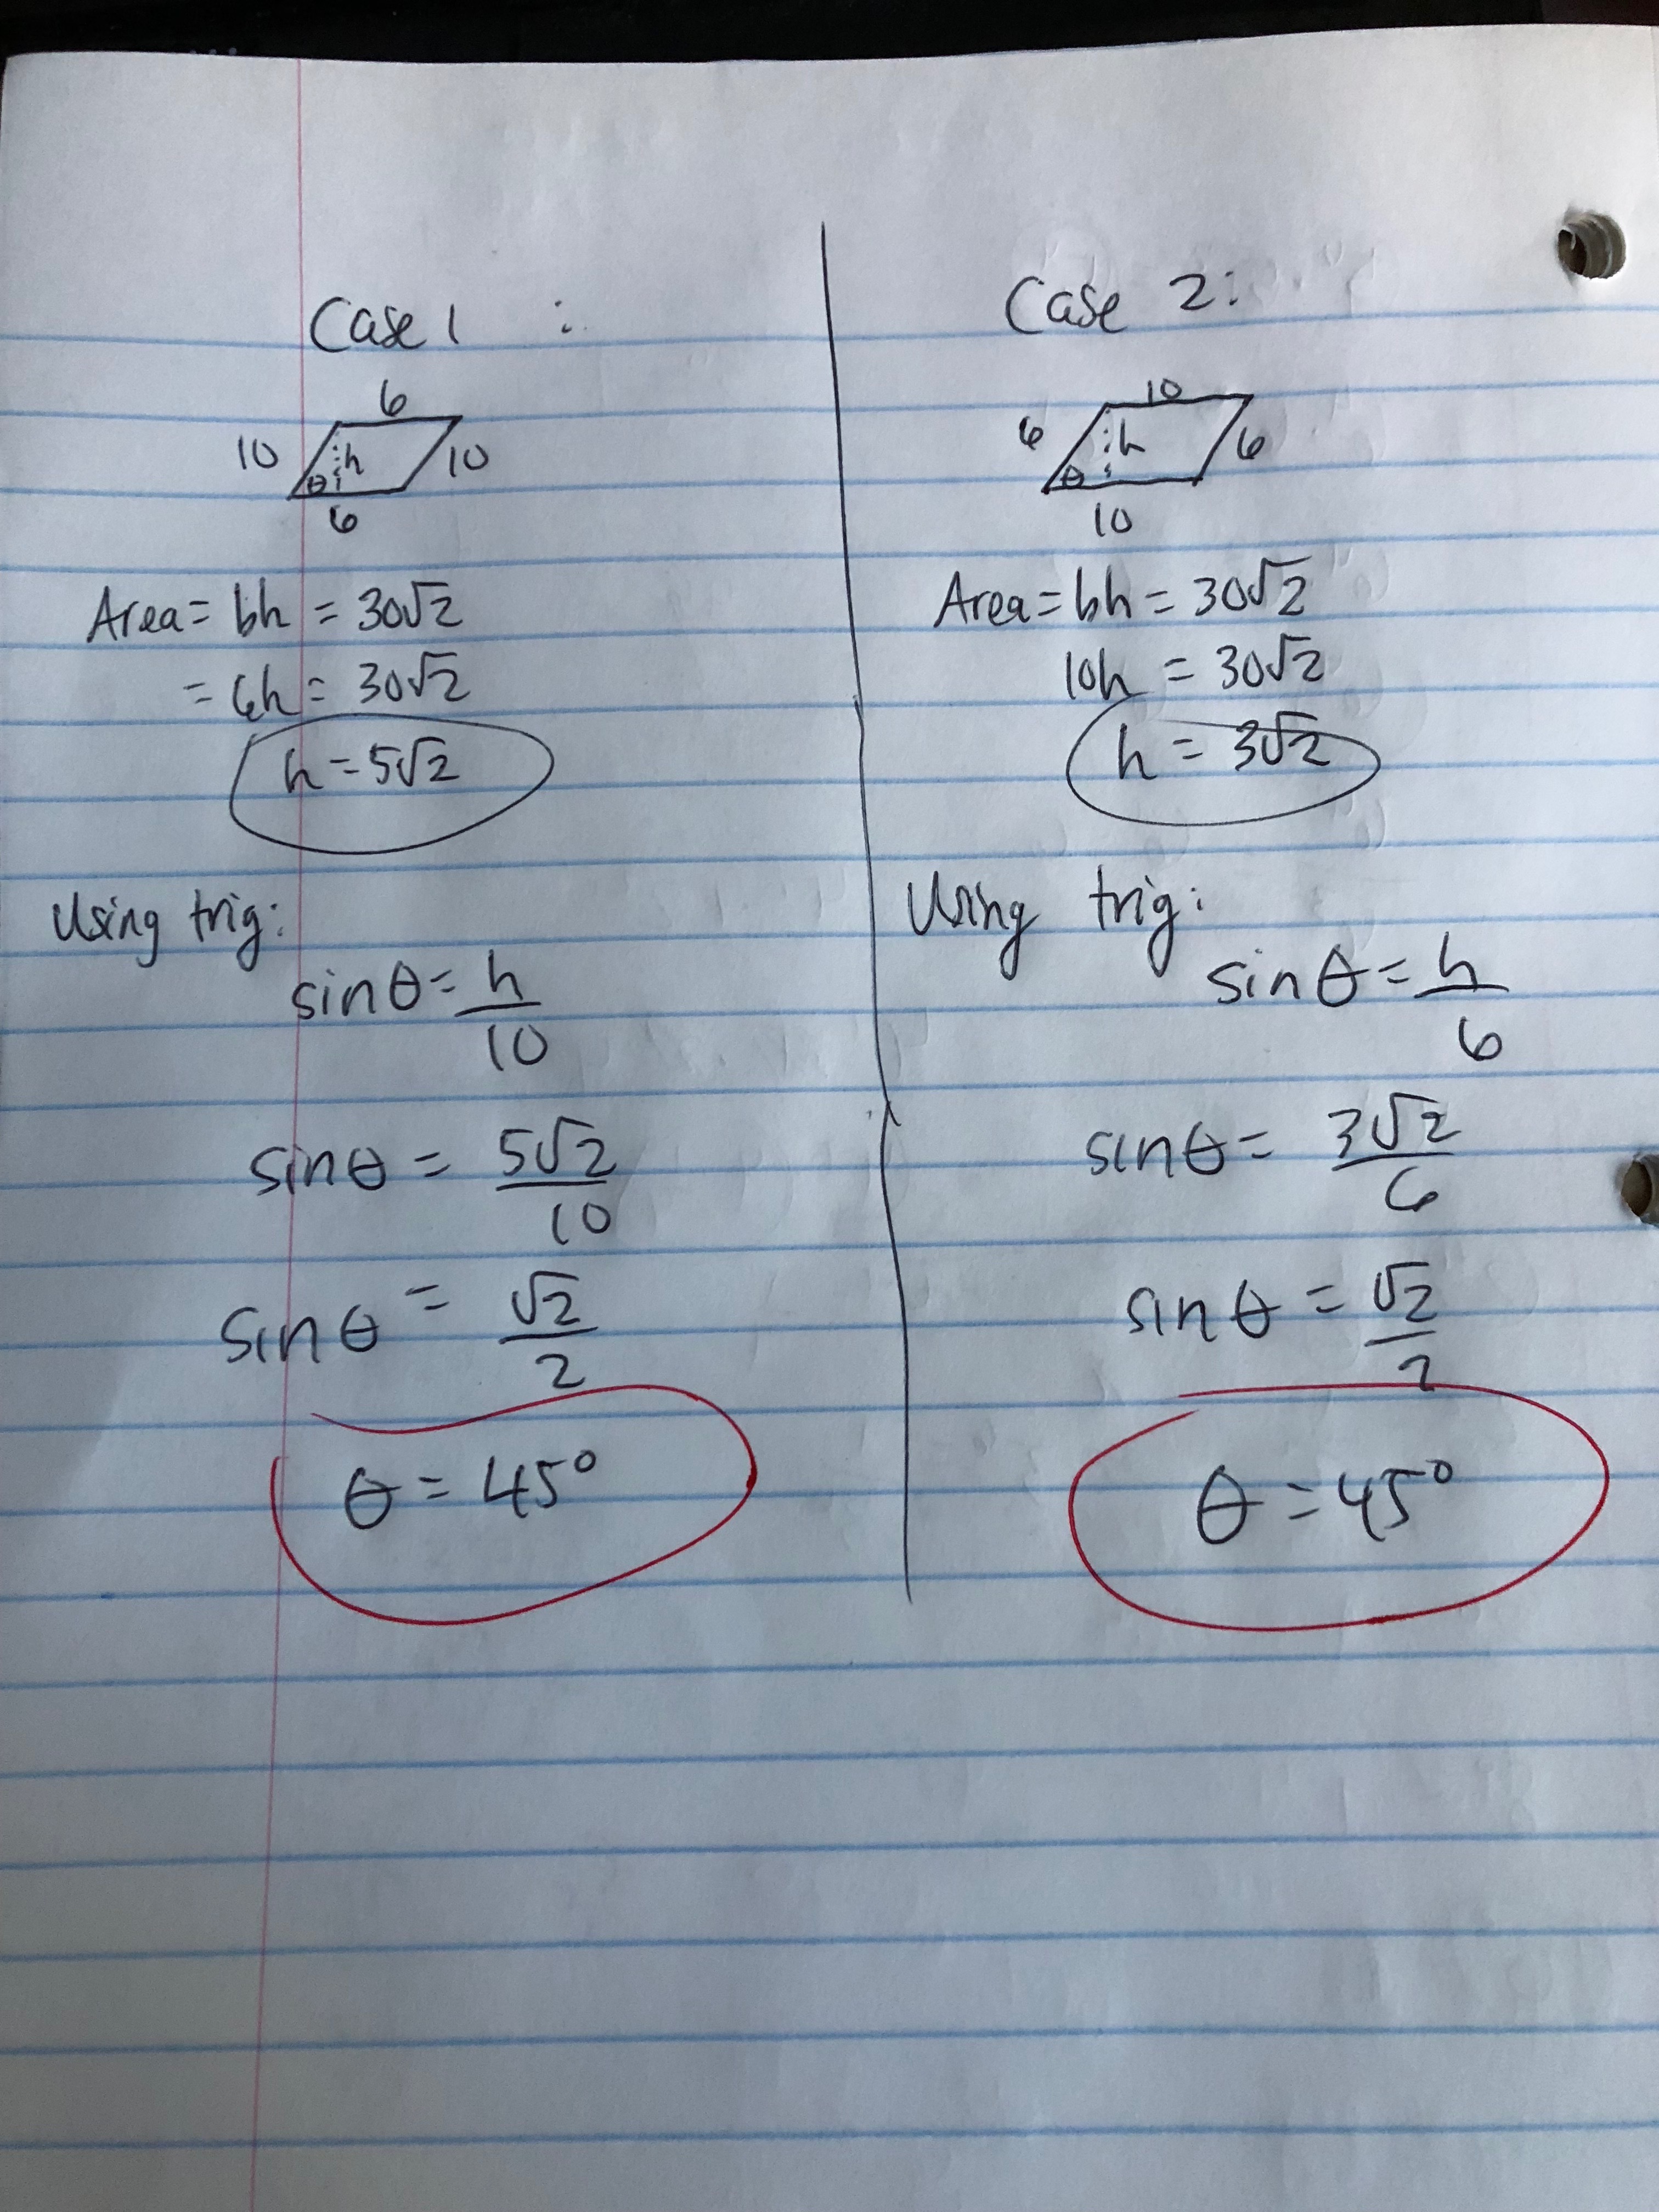 Case 1 :
6
10 h 10
θ
6
Area = bh = 30√2
= 6h = 30√2
h = 5√2
Using trig:
sinθ = h/10
sinθ = 5√2/10
sinθ = √2/2
θ = 45°
Case 2:
10
6 h 6
θ
10
Area = bh = 30√2
10h = 30√2
h = 3√2
Using trig:
sinθ = h/6
sinθ = 3√2/6
sinθ = √2/2
θ = 45°